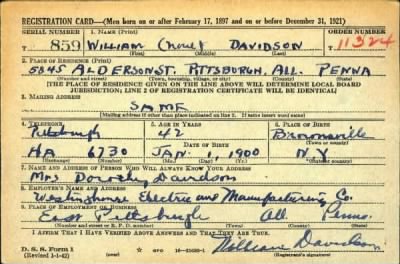 REGISTRATION CARD—(Men born on or after February 17, 1897 and on or before December 31, 1921)
SERIAL NUMBER 1. NAME (Print) ORDER NUMBER
T 859 WILLIAM (NONE) DAVIDSON 11324
(First) (Middle) (Last)
2. PLACE OF RESIDENCE (Print)
5845 ALDERSON ST. PITTSBURGH, ALL. PENNA
(Number and street) (Town, township, village, or city) (County) (State)
[THE PLACE OF RESIDENCE GIVEN ON THE LINE ABOVE WILL DETERMINE LOCAL BOARD
JURISDICTION; LINE 2 OF REGISTRATION CERTIFICATE WILL BE IDENTICAL]
3. MAILING ADDRESS
SAME
[Mailing address if other than place indicated on line 2. If same insert word same]
4. TELEPHONE 5. AGE IN YEARS 6. PLACE OF BIRTH
Pittsburgh 42 Brownsville
DATE OF BIRTH (Town or county)
HA 6730 JAN. 1, 1900 N.Y.
(Exchange) (Number) (Mo.) (Day) (Yr.) (State or country)
7. NAME AND ADDRESS OF PERSON WHO WILL ALWAYS KNOW YOUR ADDRESS
Mrs Dorothy Davidson
8. EMPLOYER'S NAME AND ADDRESS
Westinghouse Electric and Manufacturing Co.
9. PLACE OF EMPLOYMENT OR BUSINESS
East Pittsburgh All Penna.
(Number and street or R. F. D. number) (Town) (County) (State)
I AFFIRM THAT I HAVE VERIFIED ABOVE ANSWERS AND THAT THEY ARE TRUE.
D. S. S. Form 1 GPO William Davidson
(Revised 1-1-42) (Registrant's signature)